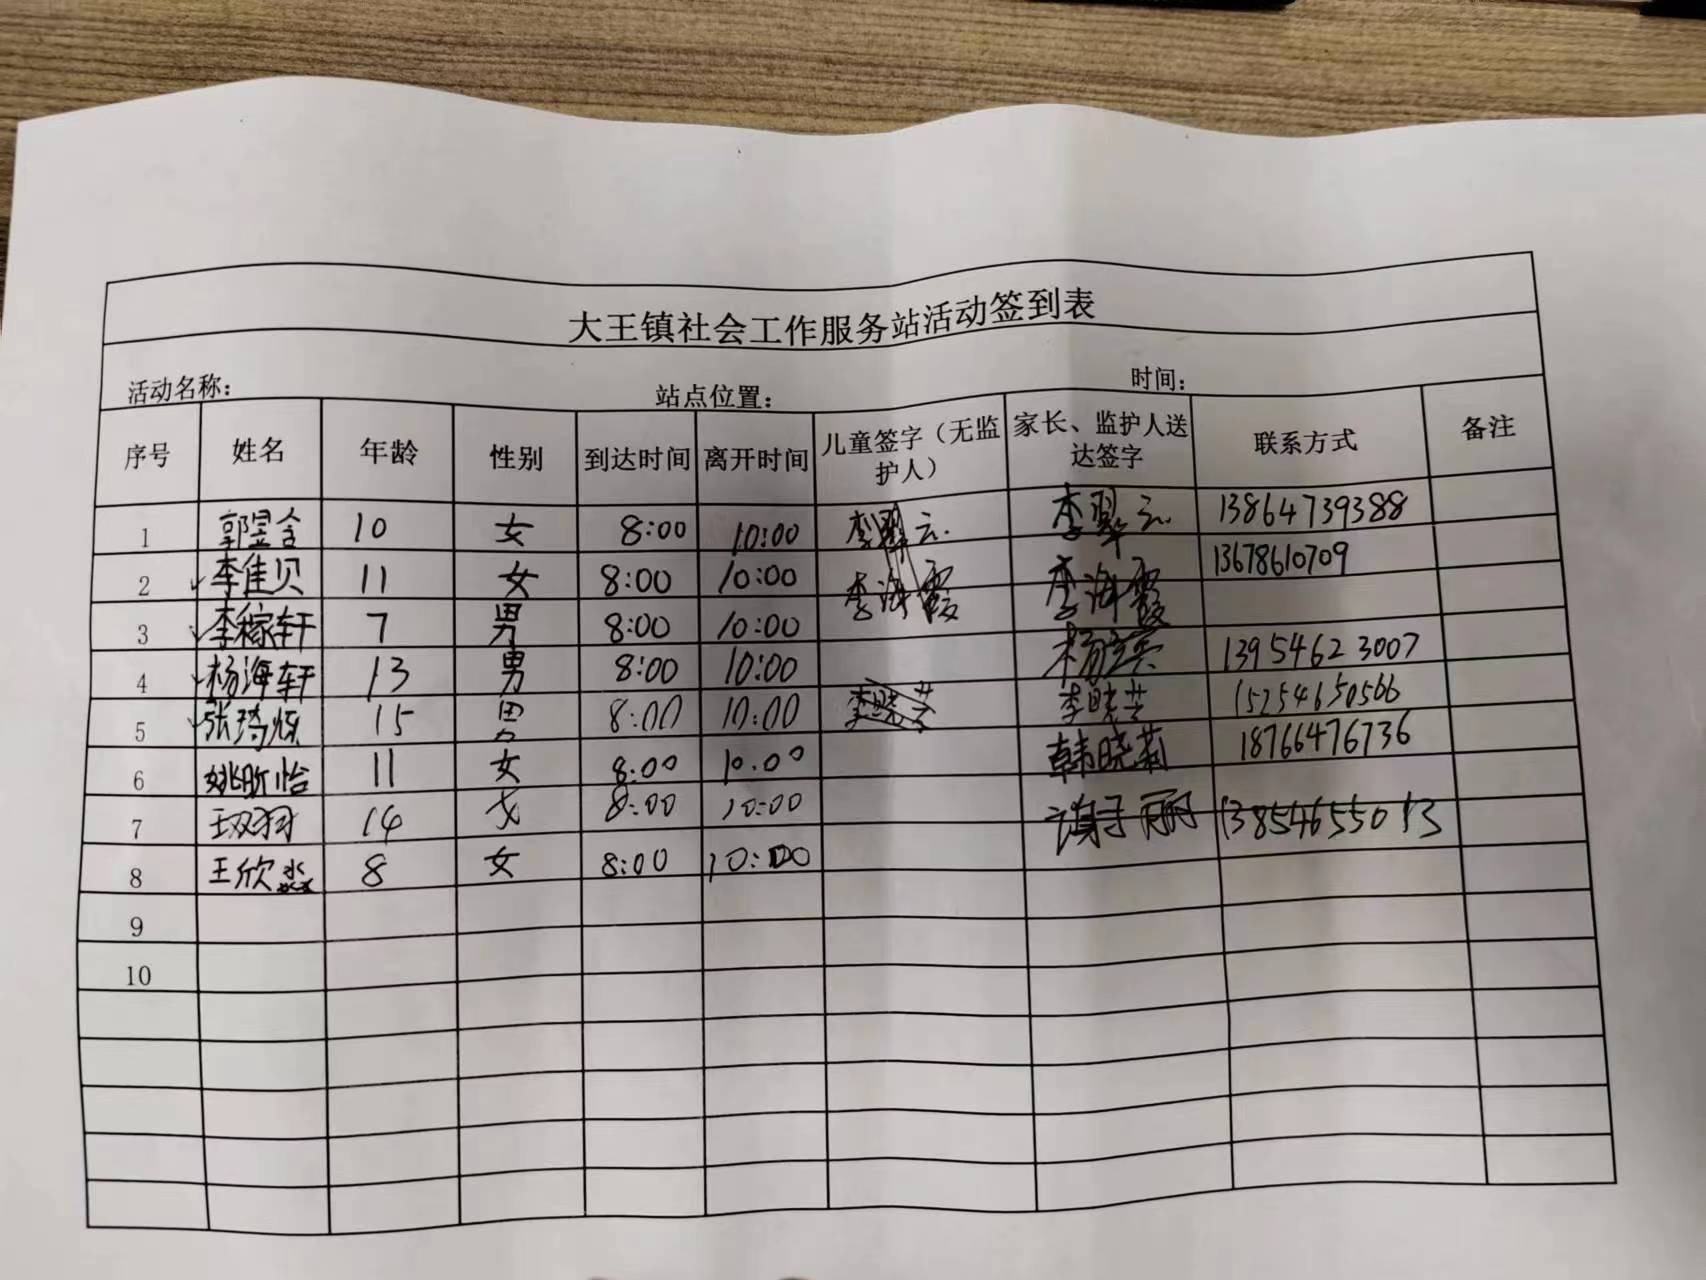 大王镇社会工作服务站活动签到表
活动名称： 站点位置： 时间：
序号 姓名 年龄 性别 到达时间 离开时间 儿童签字（无监护人） 家长、监护人送达签字 联系方式 备注
1 郭昱含 10 女 8:00 10:00 李翠云 李翠云 13864739388
2 李佳贝 11 女 8:00 10:00 李海霞 李海霞 13678610709
3 李稼轩 7 男 8:00 10:00
4 杨海轩 13 男 8:00 10:00 13954623007
5 张琦烁 15 男 8:00 10:00 李晓芸 李晓芸 15254650566
6 姚昕怡 11 女 8:00 10:00 韩晓莉 18766476736
7 14 女 8:00 10:00 13854655013
8 王欣淼 8 女 8:00 10:00
9
10